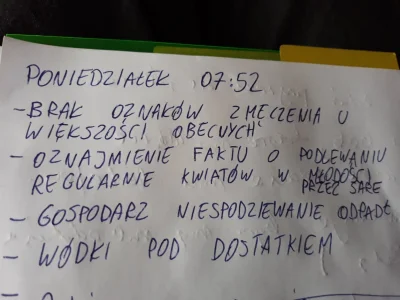 PONIEDZIAŁEK 07:52
- BRAK OZNAKÓW ZMĘCZENIA U
WIĘKSZOŚCI OBECNYCH
- OZNAJMIENIE FAKTU O PODLEWANIU
REGULARNIE KWIATÓW W MŁODOŚCI
PRZEZ SARE
- GOSPODARZ NIESPODZIEWANIE ODPADŁ
- WÓDKI POD DOSTATKIEM